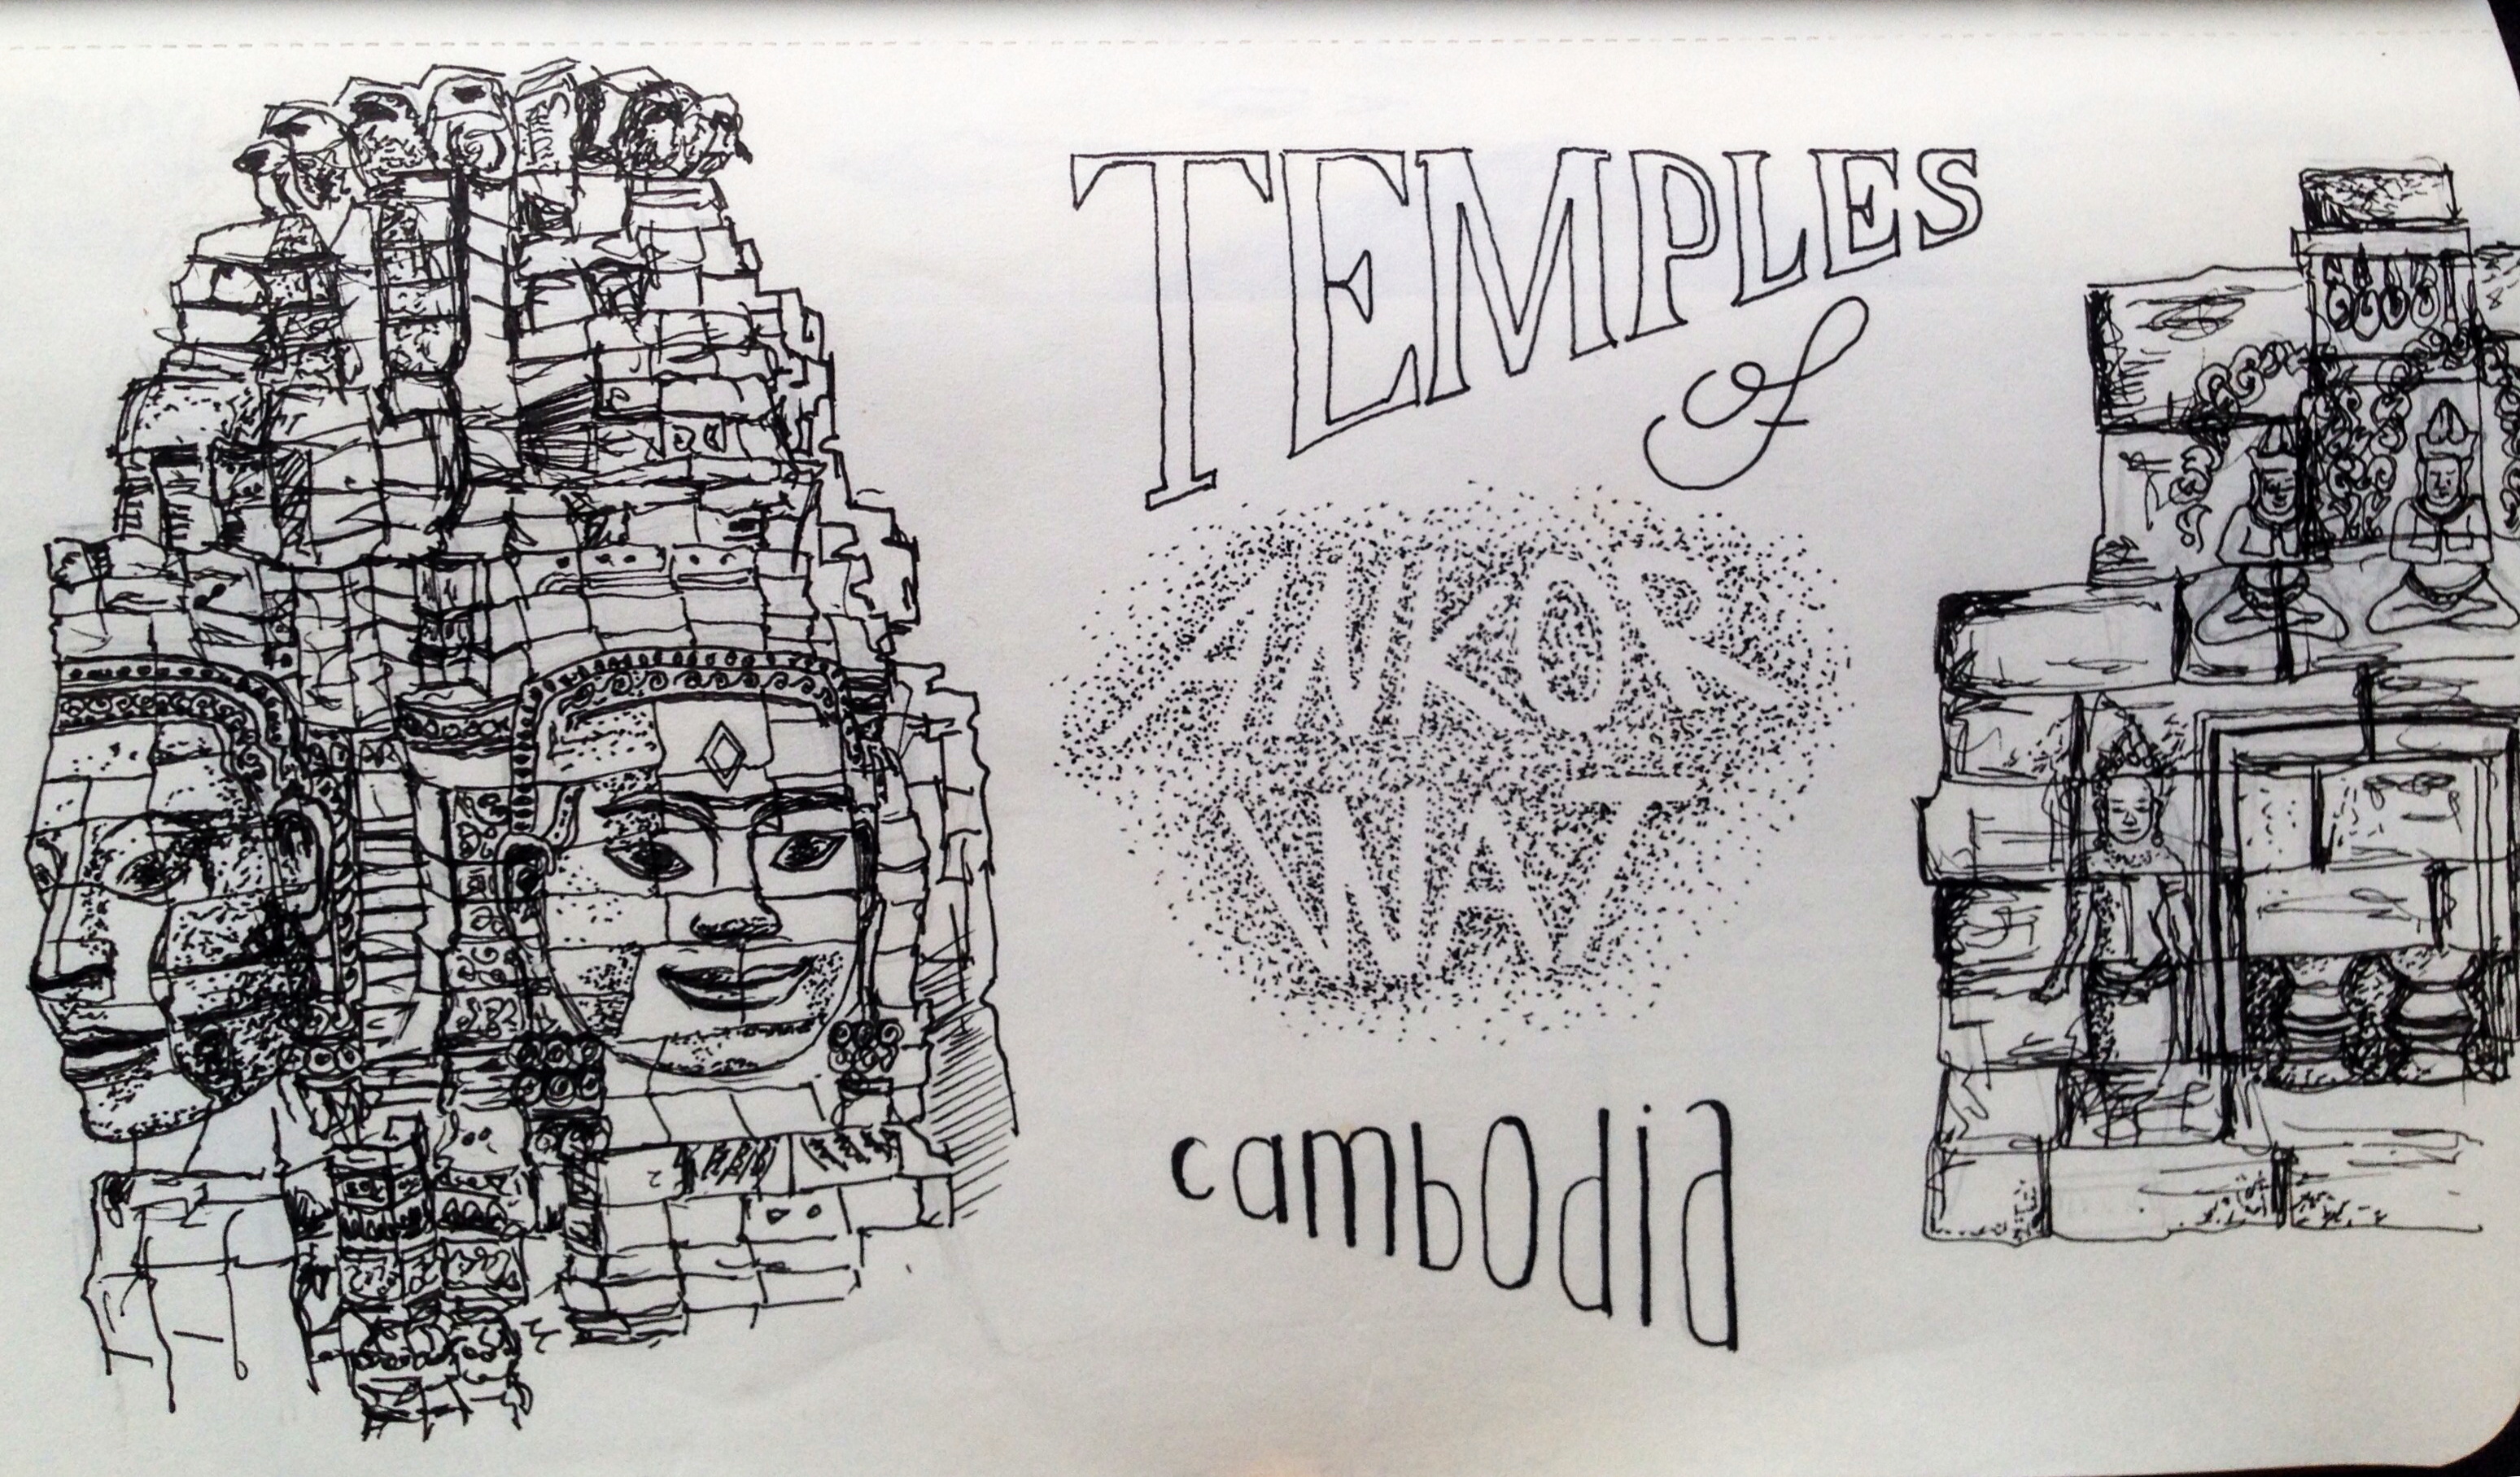 TEMPLES
of
ANKOR
WAT
cambodia